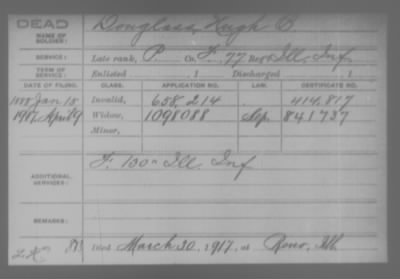 DEAD
NAME OF SOLDIER: Douglass, Hugh B.
SERVICE: Late rank, P. Co. F, 77 Reg Ill. Inf.
TERM OF SERVICE: Enlisted , 1 Discharged , 1
DATE OF FILING. CLASS. APPLICATION NO. LAW. CERTIFICATE NO.
1888 Jan 18 Invalid, 658,214 414,817
1917, April 9 Widow, 1098088 Sep. 841737
Minor,
ADDITIONAL SERVICES: F. 130" Ill. Inf
REMARKS:
Died March 30, 1917, at Reno, Ill.